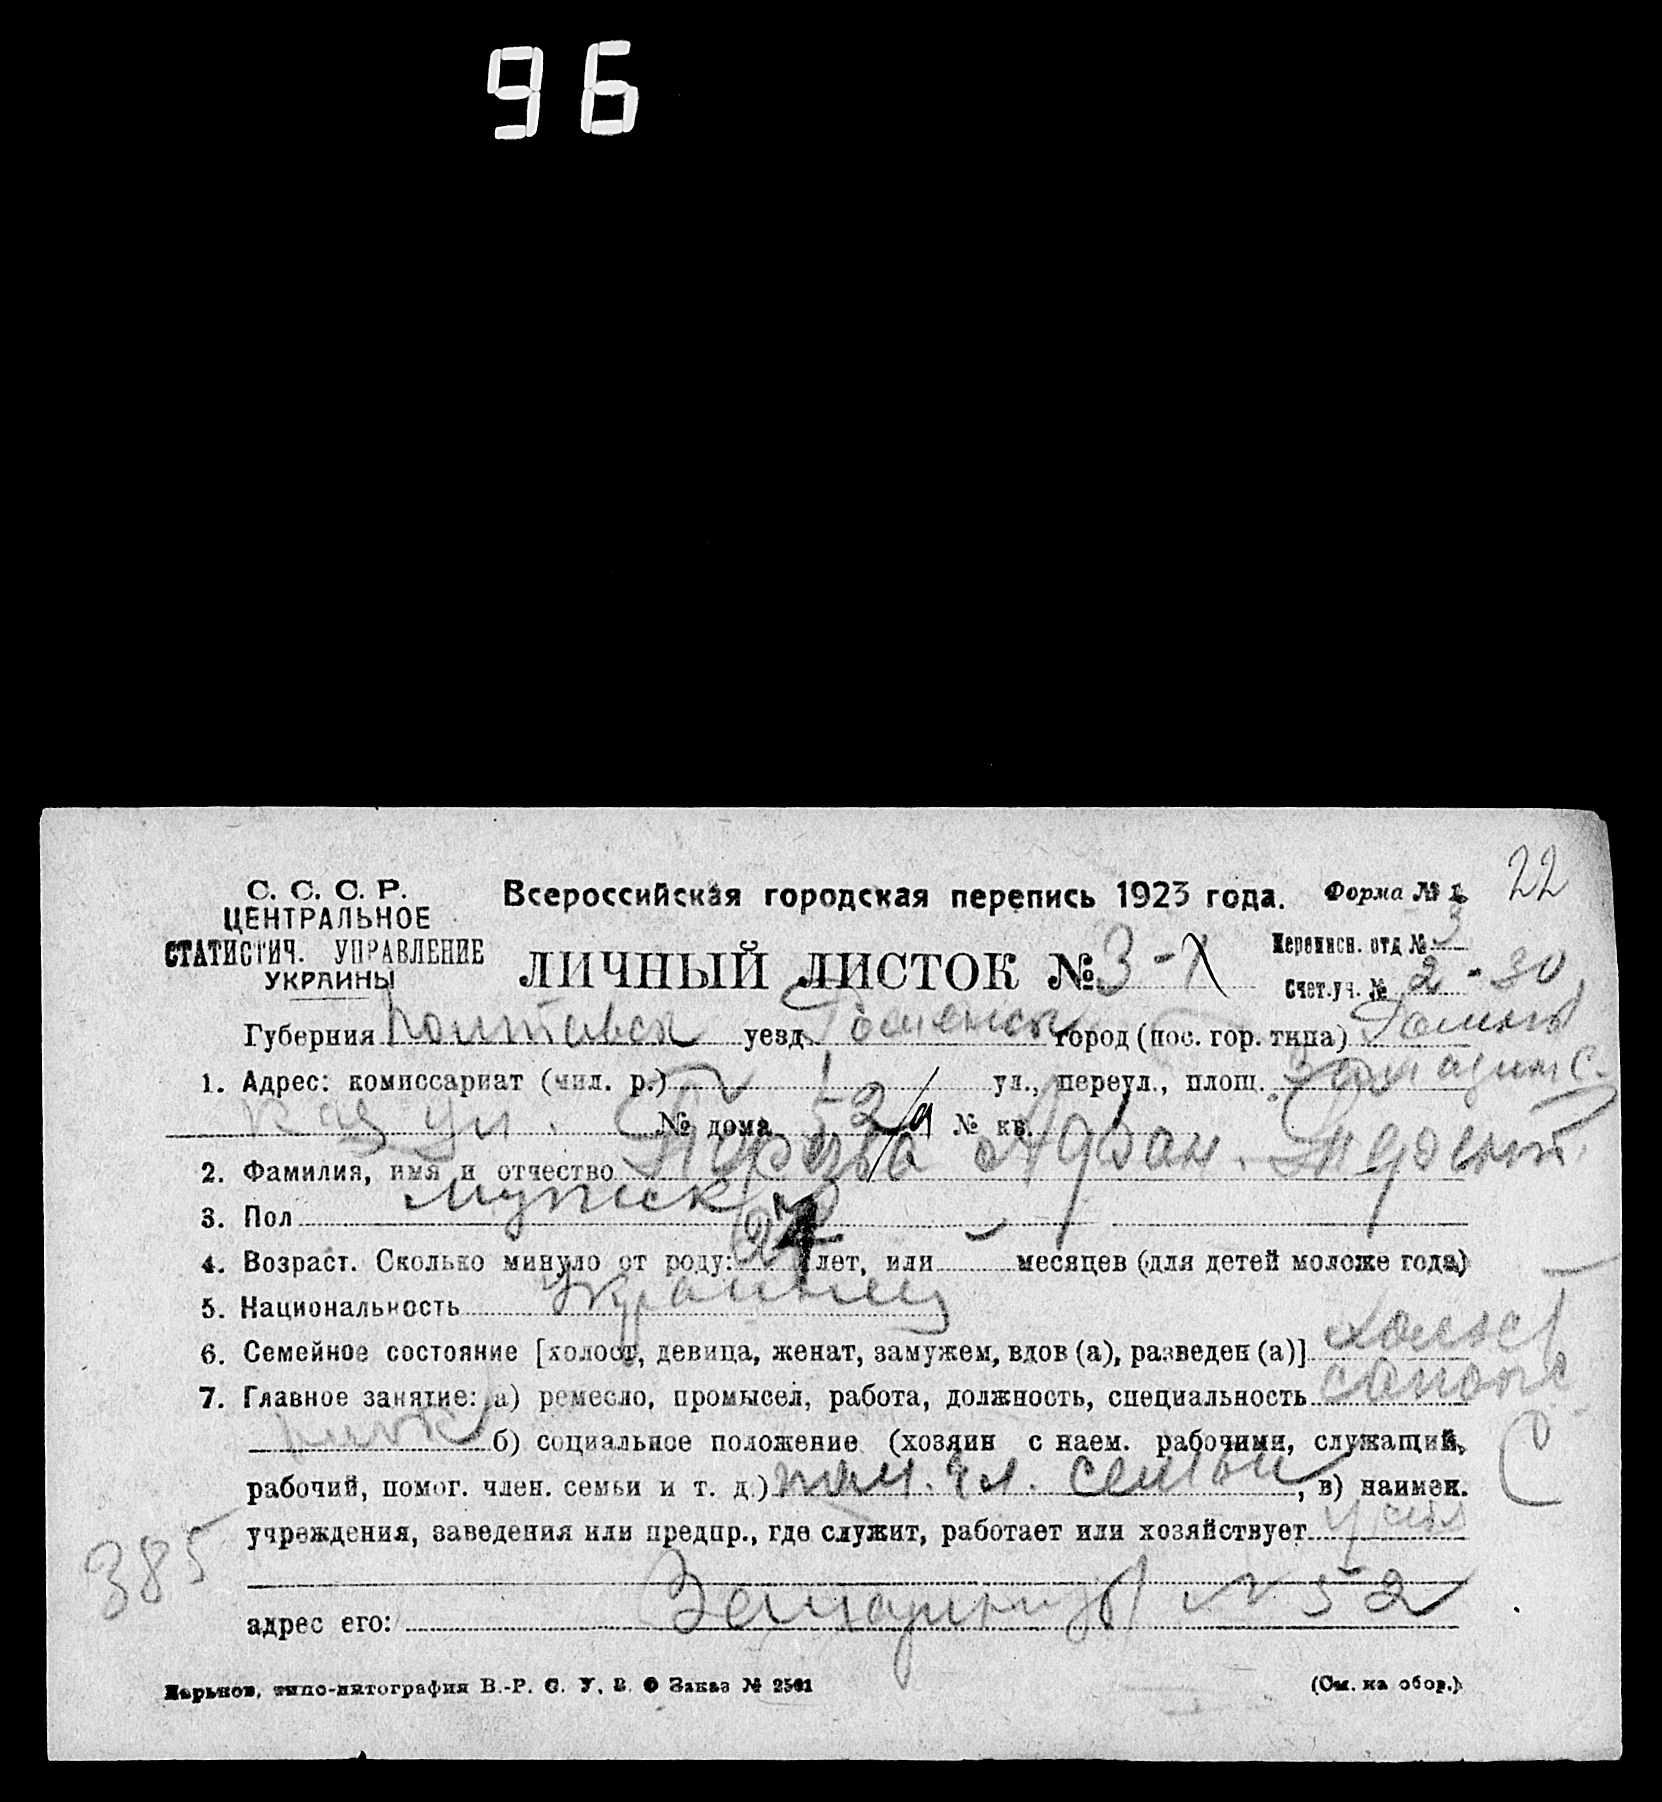 96
22
С. С. С. Р.
ЦЕНТРАЛЬНОЕ
СТАТИСТИЧ. УПРАВЛЕНИЕ
УКРАИНЫ
Всероссийская городская перепись 1923 года.
Форма № 1.
ЛИЧНЫЙ ЛИСТОК № 3-
Переписн. отд № 3
Счет.уч. № 2-30
Губерния Полтавск уезд Роменск город (пос. гор. типа) Ромны
1. Адрес: комиссариат (мил. р.) ул., переул., площ.
ул. № дома 52/а № кв.
2. Фамилия, имя и отчество
3. Пол мужск
4. Возраст. Сколько минуло от роду: лет, или месяцев (для детей моложе года)
5. Национальность Украинец
6. Семейное состояние [холост, девица, женат, замужем, вдов (а), разведен (а)] холост
7. Главное занятие: а) ремесло, промысел, работа, должность, специальность сапож
ник б) социальное положение (хозяин с наем. рабочими, служащий,
рабочий, помог. член. семьи и т. д.) пом. чл. семьи, в) наимен.
учреждения, заведения или предпр., где служит, работает или хозяйствует
адрес его: № 52
385
С
Харьков, типо-литография В.-Р. С. У. В. Заказ № 2501
(См. на обор.)